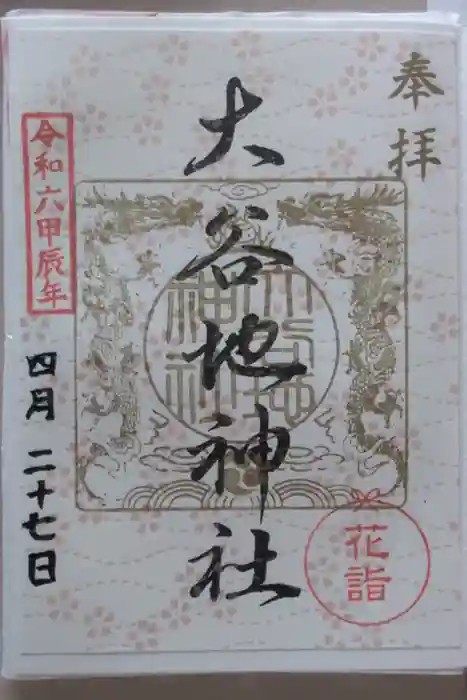 奉拝
大谷地神社
大谷地
神社
花詣
令和六甲辰年
四月二十七日